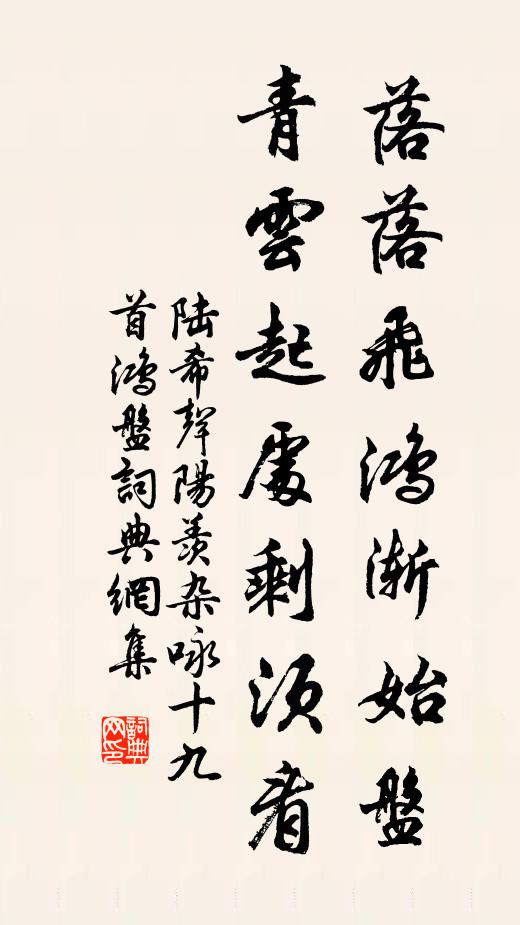 落落飛鴻漸始盤
青雲起處剩須看
陸希聲陽羨杂咏十九
首鴻盤詞典網集
詞典網印